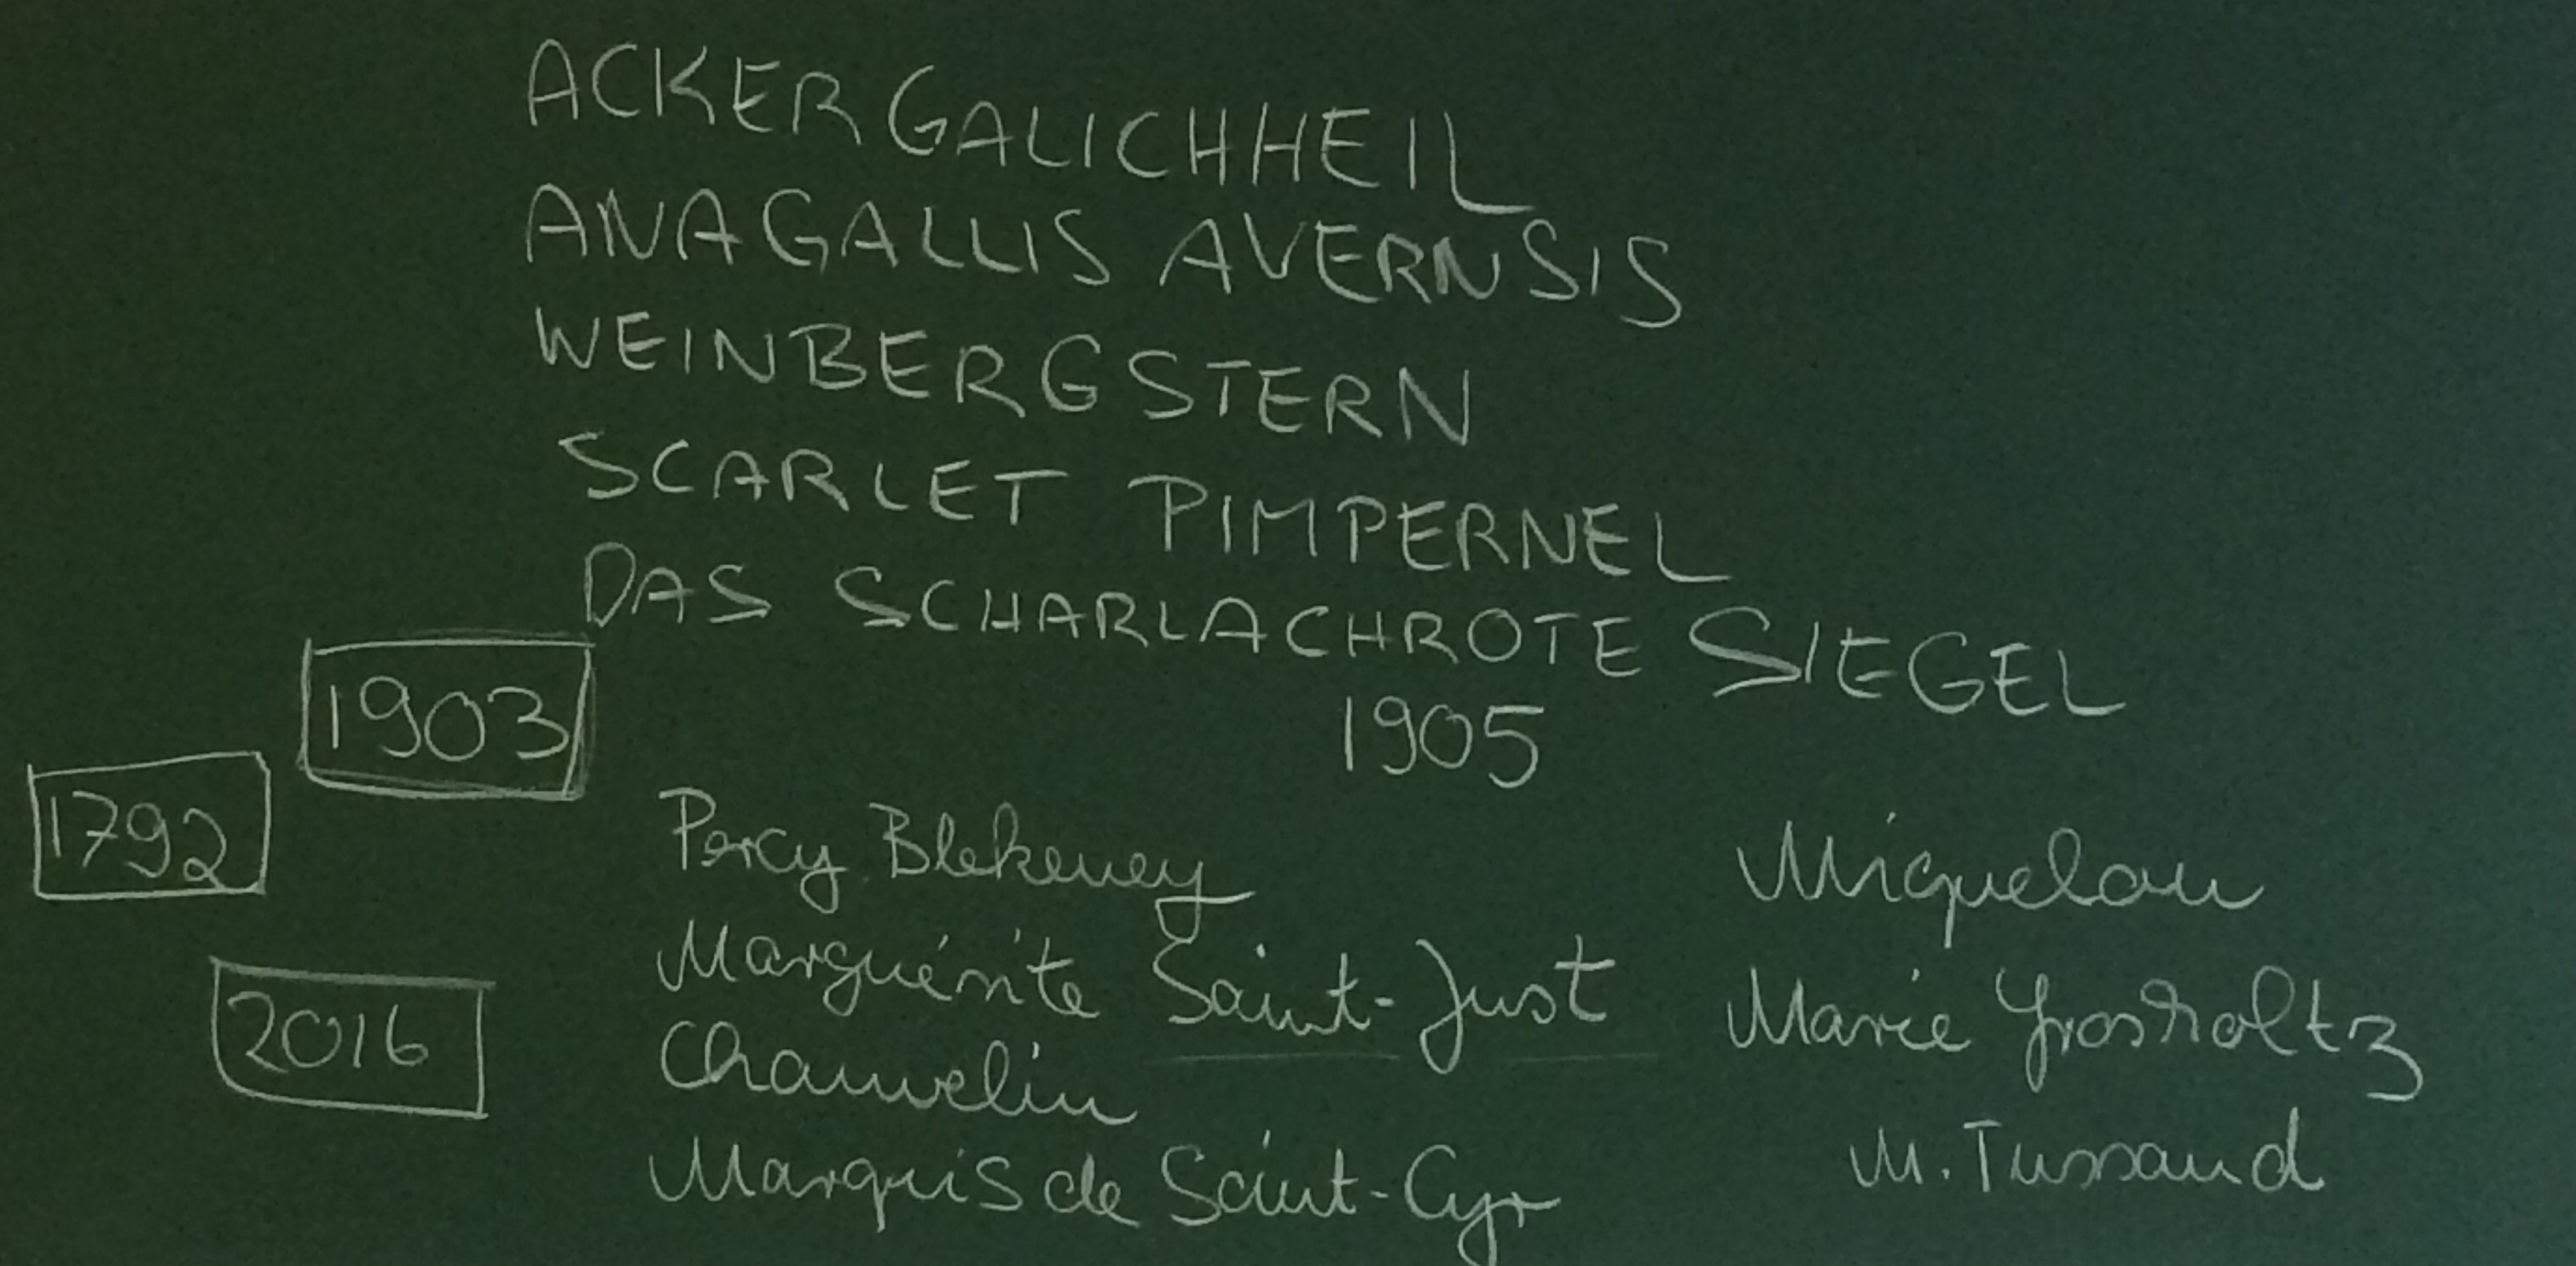 ACKERGALICHHEIL
ANAGALLIS AVERNSIS
WEINBERGSTERN
SCARLET PIMPERNEL
DAS SCHARLACHROTE SIEGEL
1903
1905
1792
Percy Blekeney
Miquelon
Marguérite Saint-Just
Marie Grosholtz
2016
Chauvelin
Marquis de Saint-Cyr
M. Tussaud